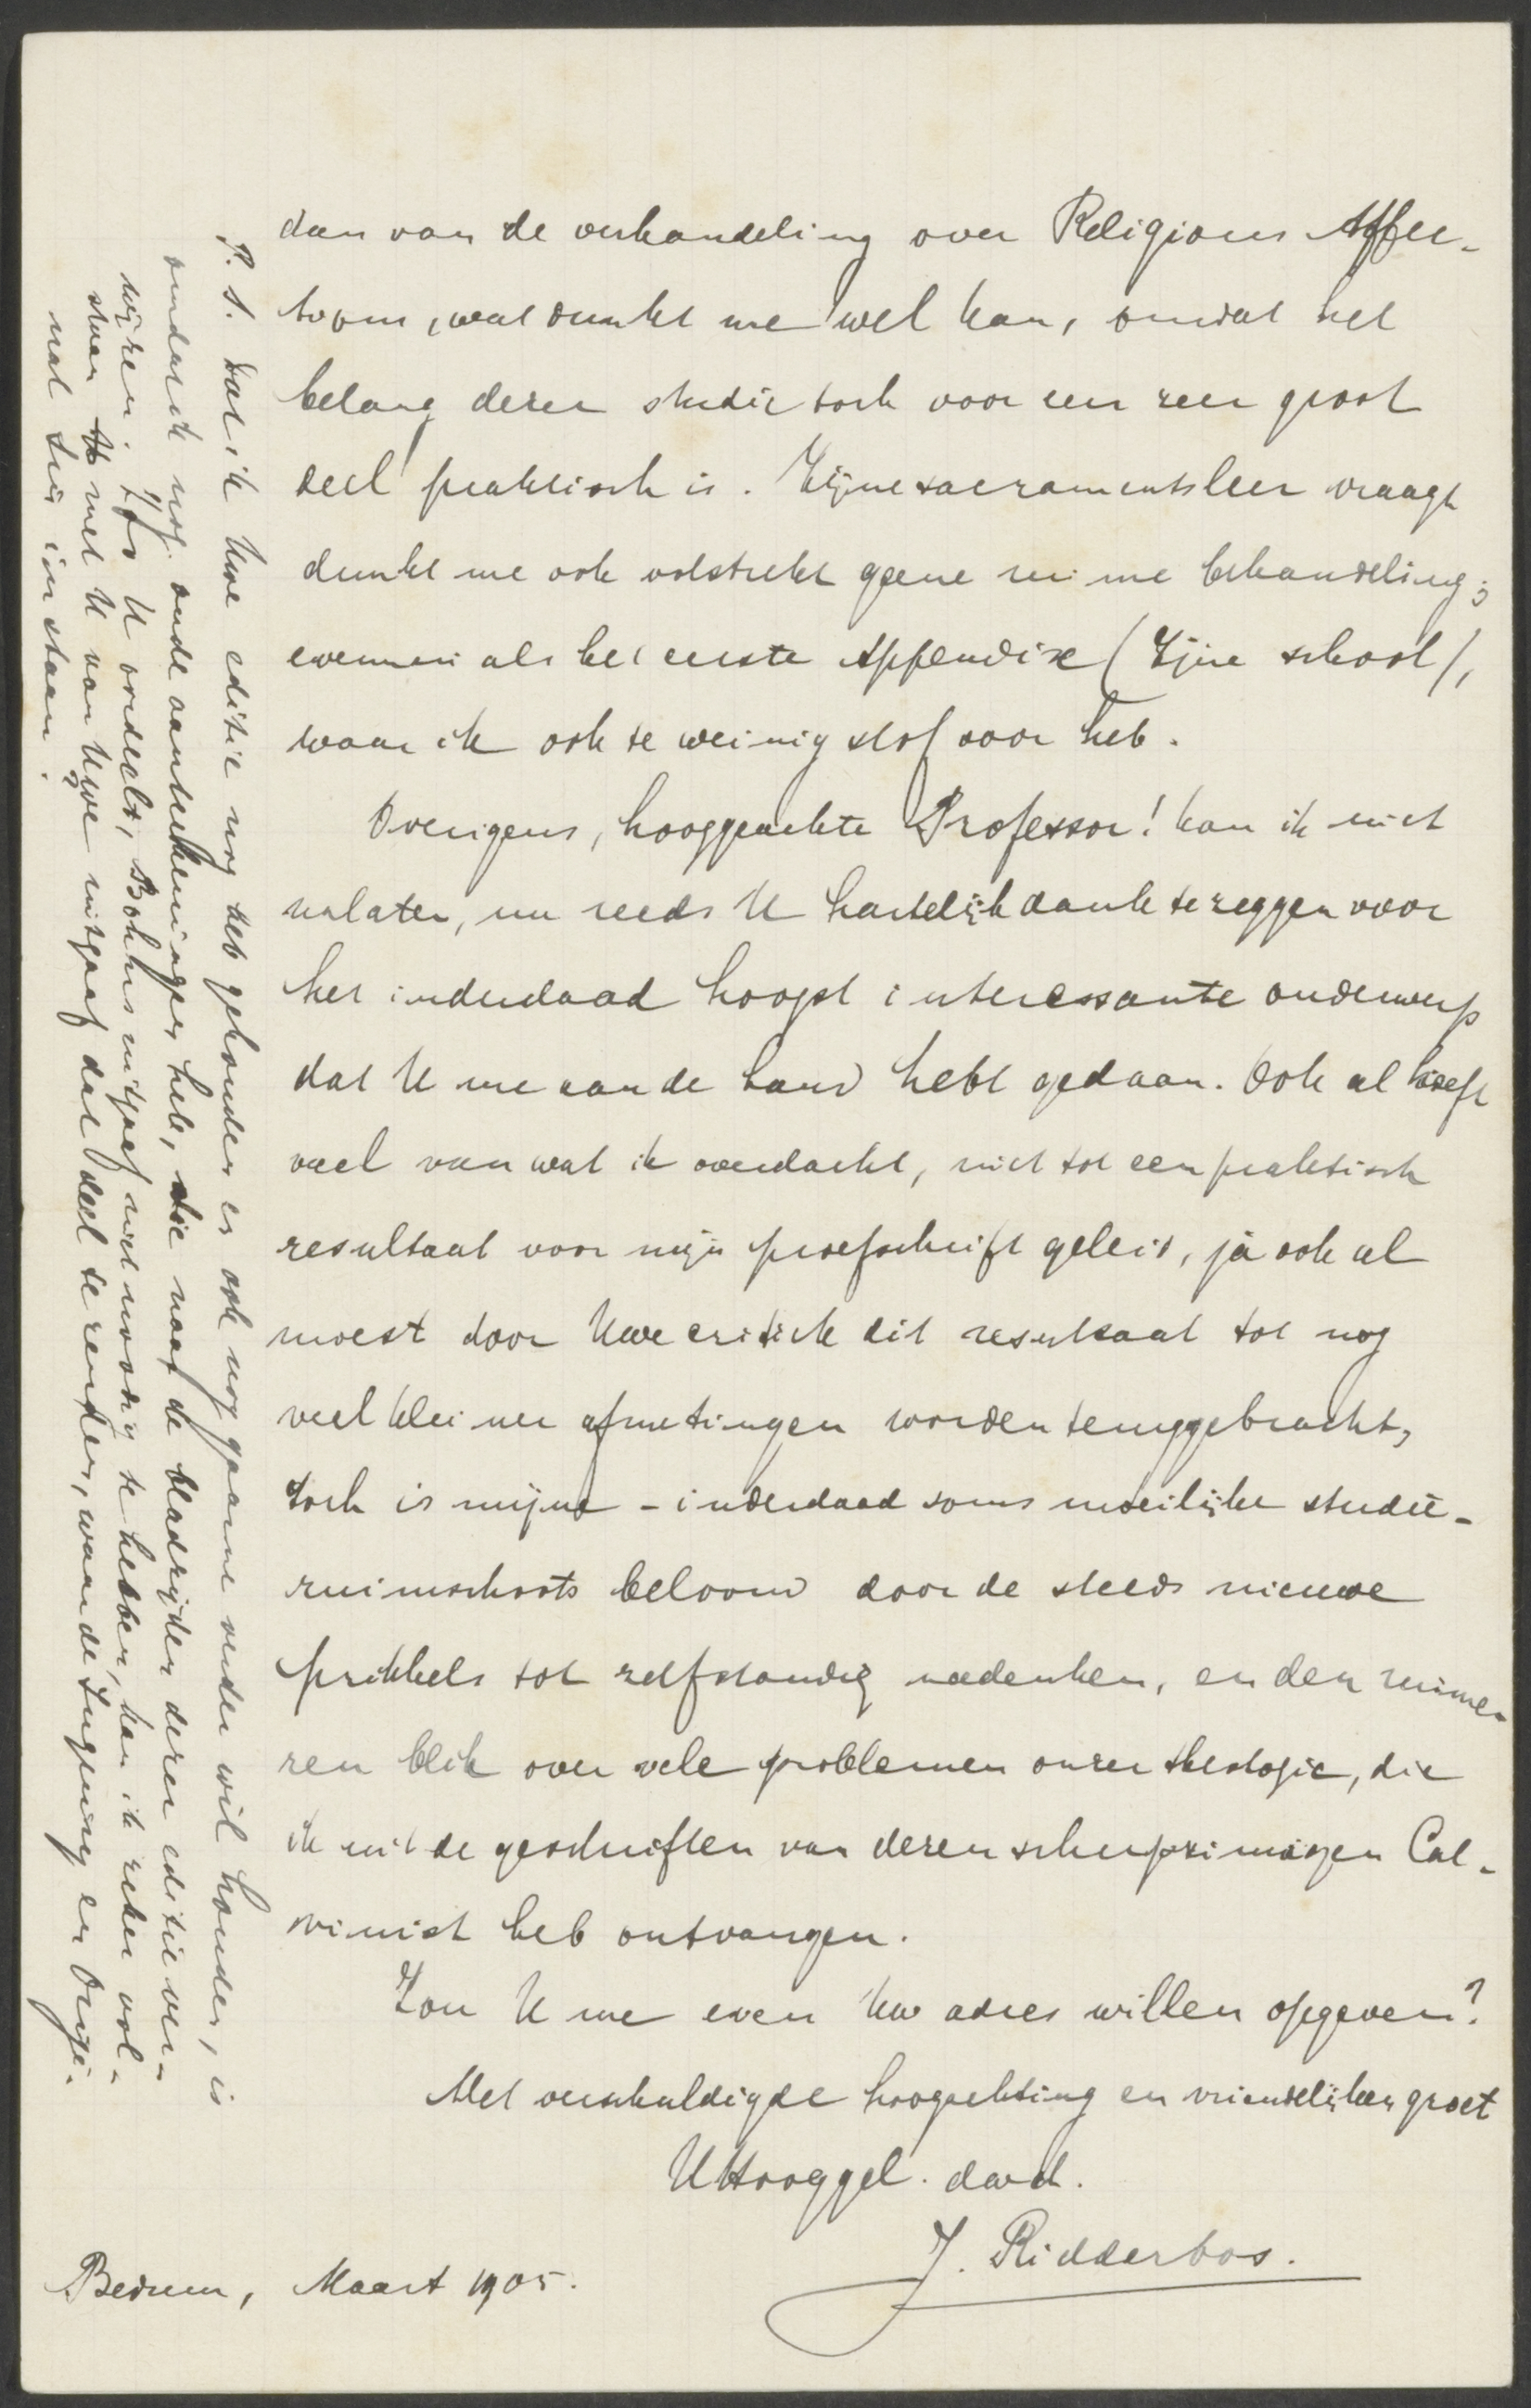 dan van de verhandeling over Religious Affec-
tions, wat dunkt me wel kan, omdat het
belang dezer studie toch voor een zeer groot
deel praktisch is. Zijne sacramentsleer vraagt
dunkt me ook volstrekt geene ruime behandeling;
evenmin als het eerste Appendix (Zijne school),
waar ik ook te weinig stof voor heb.
Overigens, hooggeachte Professor! kan ik niet
nalaten, nu reeds U hartelijk dank te zeggen voor
het inderdaad hoogst interessante onderwerp
dat U me aan de hand hebt gedaan. Ook al heeft
veel van wat ik overdacht, niet tot een praktisch
resultaat voor mijn proefschrift geleid, ja ook al
moest door Uwe critiek dit resultaat tot nog
veel kleiner afmetingen worden teruggebracht,
toch is mijne - inderdaad soms moeilijke studie -
ruimschoots beloond door de steeds nieuwe
prikkels tot zelfstandig nadenken, en den ruime-
ren blik over vele problemen onzer theologie, die
ik uit de geschriften van dezen scherpzinnigen Cal-
vinist heb ontvangen.
Zou U me even Uw adres willen opgeven?
Met verschuldigde hoogachting en vriendelijken groet
UHooggel. dw. d.
J. Ridderbos.
Bedum, Maart 1905.
P.S. Dat ik Uwe editie nog heb gehouden en ook nog gaarne verder wil houden, is
omdat ik nog oude aanteekeningen heb, die naar de bladzijden dezer editie ver-
wijzen. Zoo U oordeelt, Bohns uitgaaf niet noodig te hebben, kan ik zeker vol-
staan met U van Uwe uitgaaf dat deel te zenden, waar de Inquiry en Origi-
nal Sin in staan.